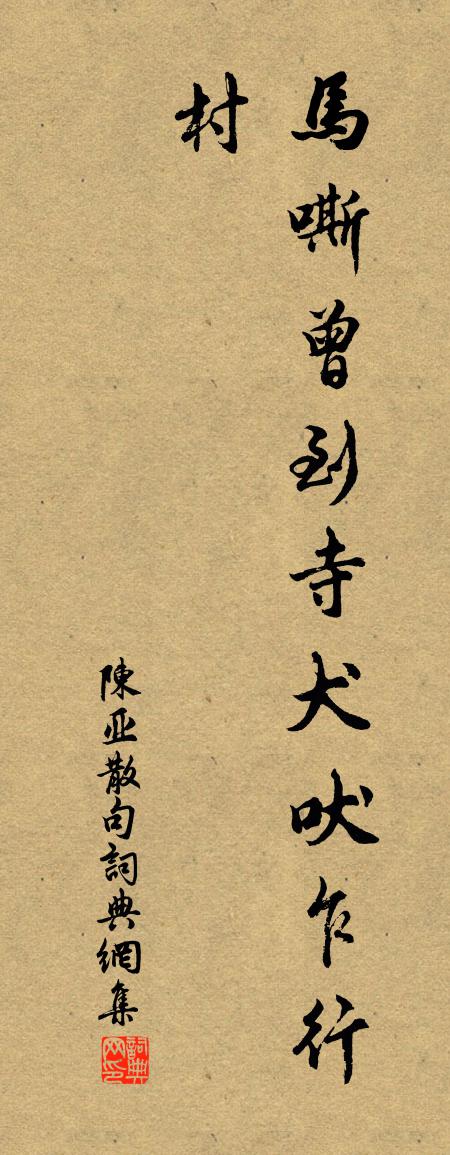 馬嘶曾到寺犬吠乍行
村
陳亚散句詞典網集
詞典网印